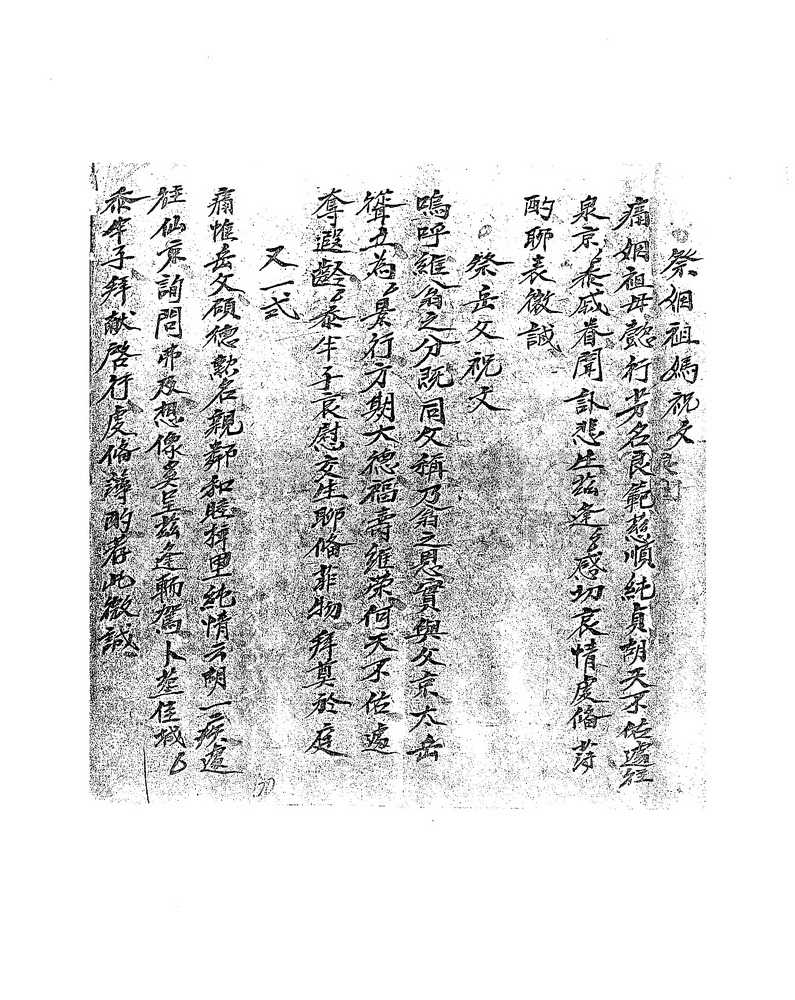 祭姻祖媽祝文
痛姻祖母懿行芳名良範慈順純貞胡天不佑遽經
泉京忝戚眷聞訃悲生茲逢感切哀情虔俻菲
酌聊表微誠
祭岳父祝文
嗚呼維翁之分既同父稱乃翁之恩實與父京太岳
聳立為行方期大德福壽維荣何天不佑遽
奪遐齡忝半子哀慰交生聊俻菲物拜奠於庭
又一式
痛惟岳父碩德勲名親鄰和睦純情云胡一疾遽
仙京詢問弗及想像莫呈茲逢輀駕卜塟佳城
忝半子拜献啓行虔俻薄酌荐此微誠